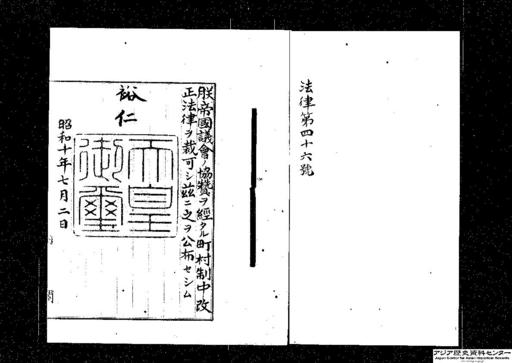 法律第四十六號
朕帝國議會ノ協贊ヲ經タル町村制中改
正法律ヲ裁可シ茲ニ之ヲ公布セシム
裕仁
天皇
御璽
昭和十年七月二日
アジア歴史資料センター
Japan Center for Asian Historical Records